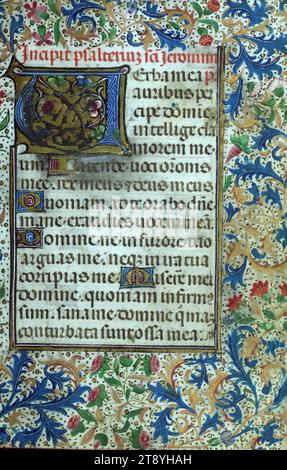 Incipit psalterium sci Jeronimi
Verba mea
auribus per
cipe domine
intellige cla
morem me
um. Intende uoci orōnis
mee. rex meus et deus meus
Quoniam ad te orabo dñe
mane exaudies uocem mea
Domine ne in furore tuo
arguas me. neque in ira tua
corripias me. Miserere mei
domine. quoniam infirmus
sum. sana me domine qm
conturbata sunt ossa mea.
alamy
Image ID: 2T8YHAH
www.alamy.com